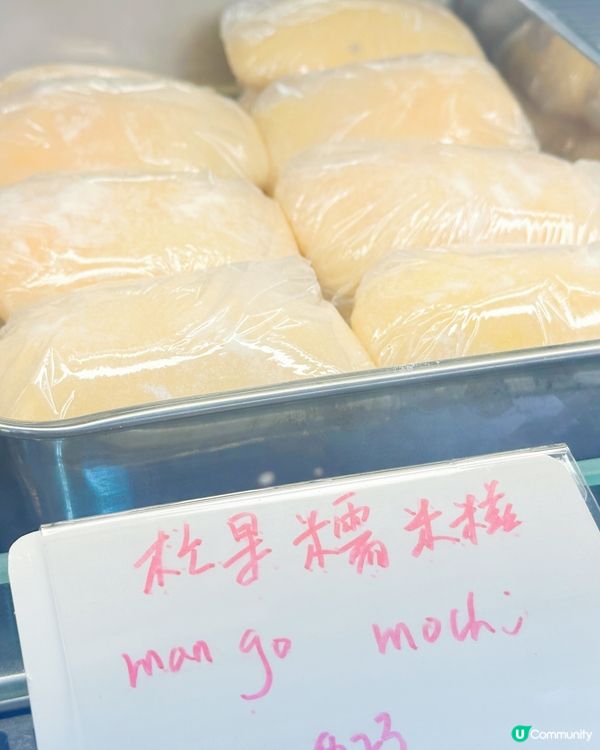 杧果糯米糍
mango mochi
U Community